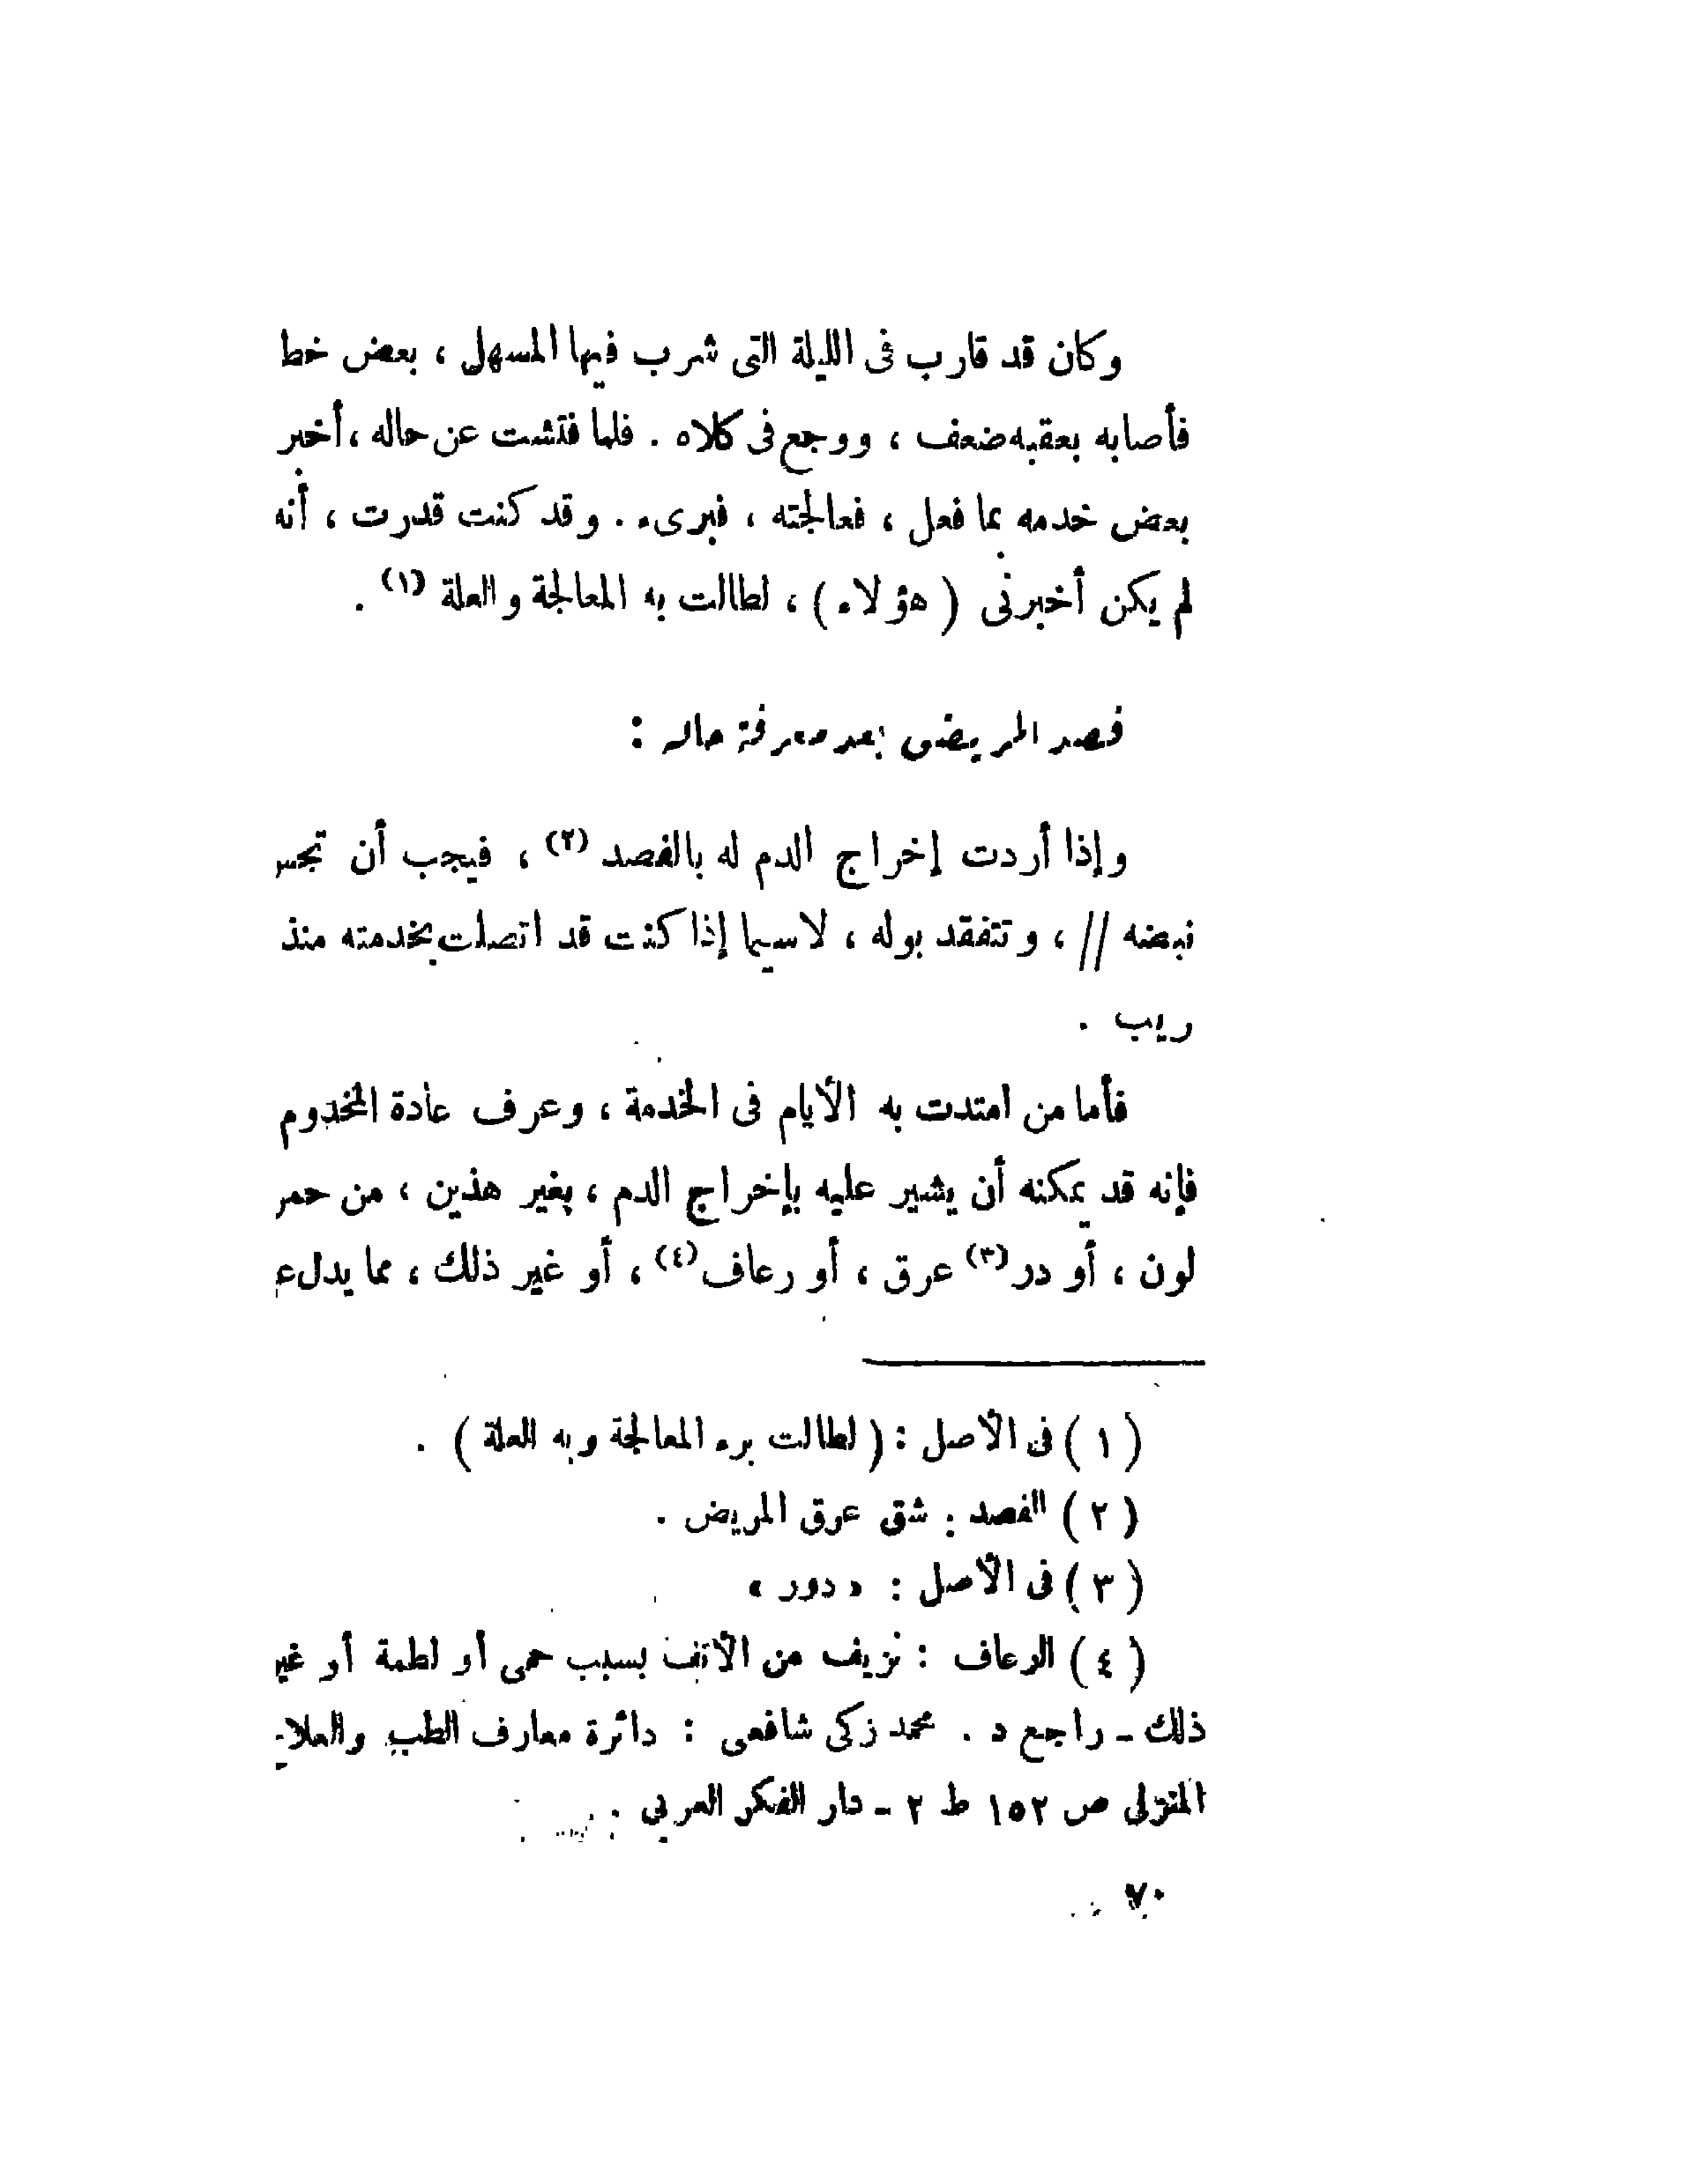 وكان قد قارب فى الليلة التى شرب فيها المسهل ، بعض خط
فأصابه بعقبه ضعف ، ووجع فى كلاه . فلما فتشت عن حاله ، أخبر
بعض خدمه بما فعل ، فعالجته ، فبرىء . وقد كنت قدرت ، أنه
لم يكن أخبرنى ( هؤلاء ) ، لطالت به المعالجة والعلة (١) .
فصد المريض بعد معرفة حاله :
وإذا أردت إخراج الدم له بالفصد (٢) ، فيجب أن تجس
نبضه // ، وتتفقد بوله ، لاسيما إذا كنت قد اتصلت بخدمته منذ
ريب .
فأما من امتدت به الأيام فى الخدمة ، وعرف عادة المخدوم
فإنه قد يمكنه أن يشير عليه بإخراج الدم ، بغير هذين ، من حمر
لون ، أو در (٣) عرق ، أو رعاف (٤) ، أو غير ذلك ، مما يدل ع
( ١ ) فى الأصل : ( لطالت برء المعالجة وبه العلة ) .
( ٢ ) الفصد : شق عرق المريض .
( ٣ ) فى الأصل : « دور »
( ٤ ) الرعاف : نزيف من الأنف بسبب حمى أو لطمة أو غير
ذلك - راجع د . محمد زكى شافعى : دائرة معارف الطب والعلا
المنزلى ص ١٥٢ ط ٢ - دار الفكر العربي .
٧٠